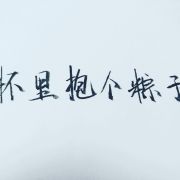 怀里抱个粽子